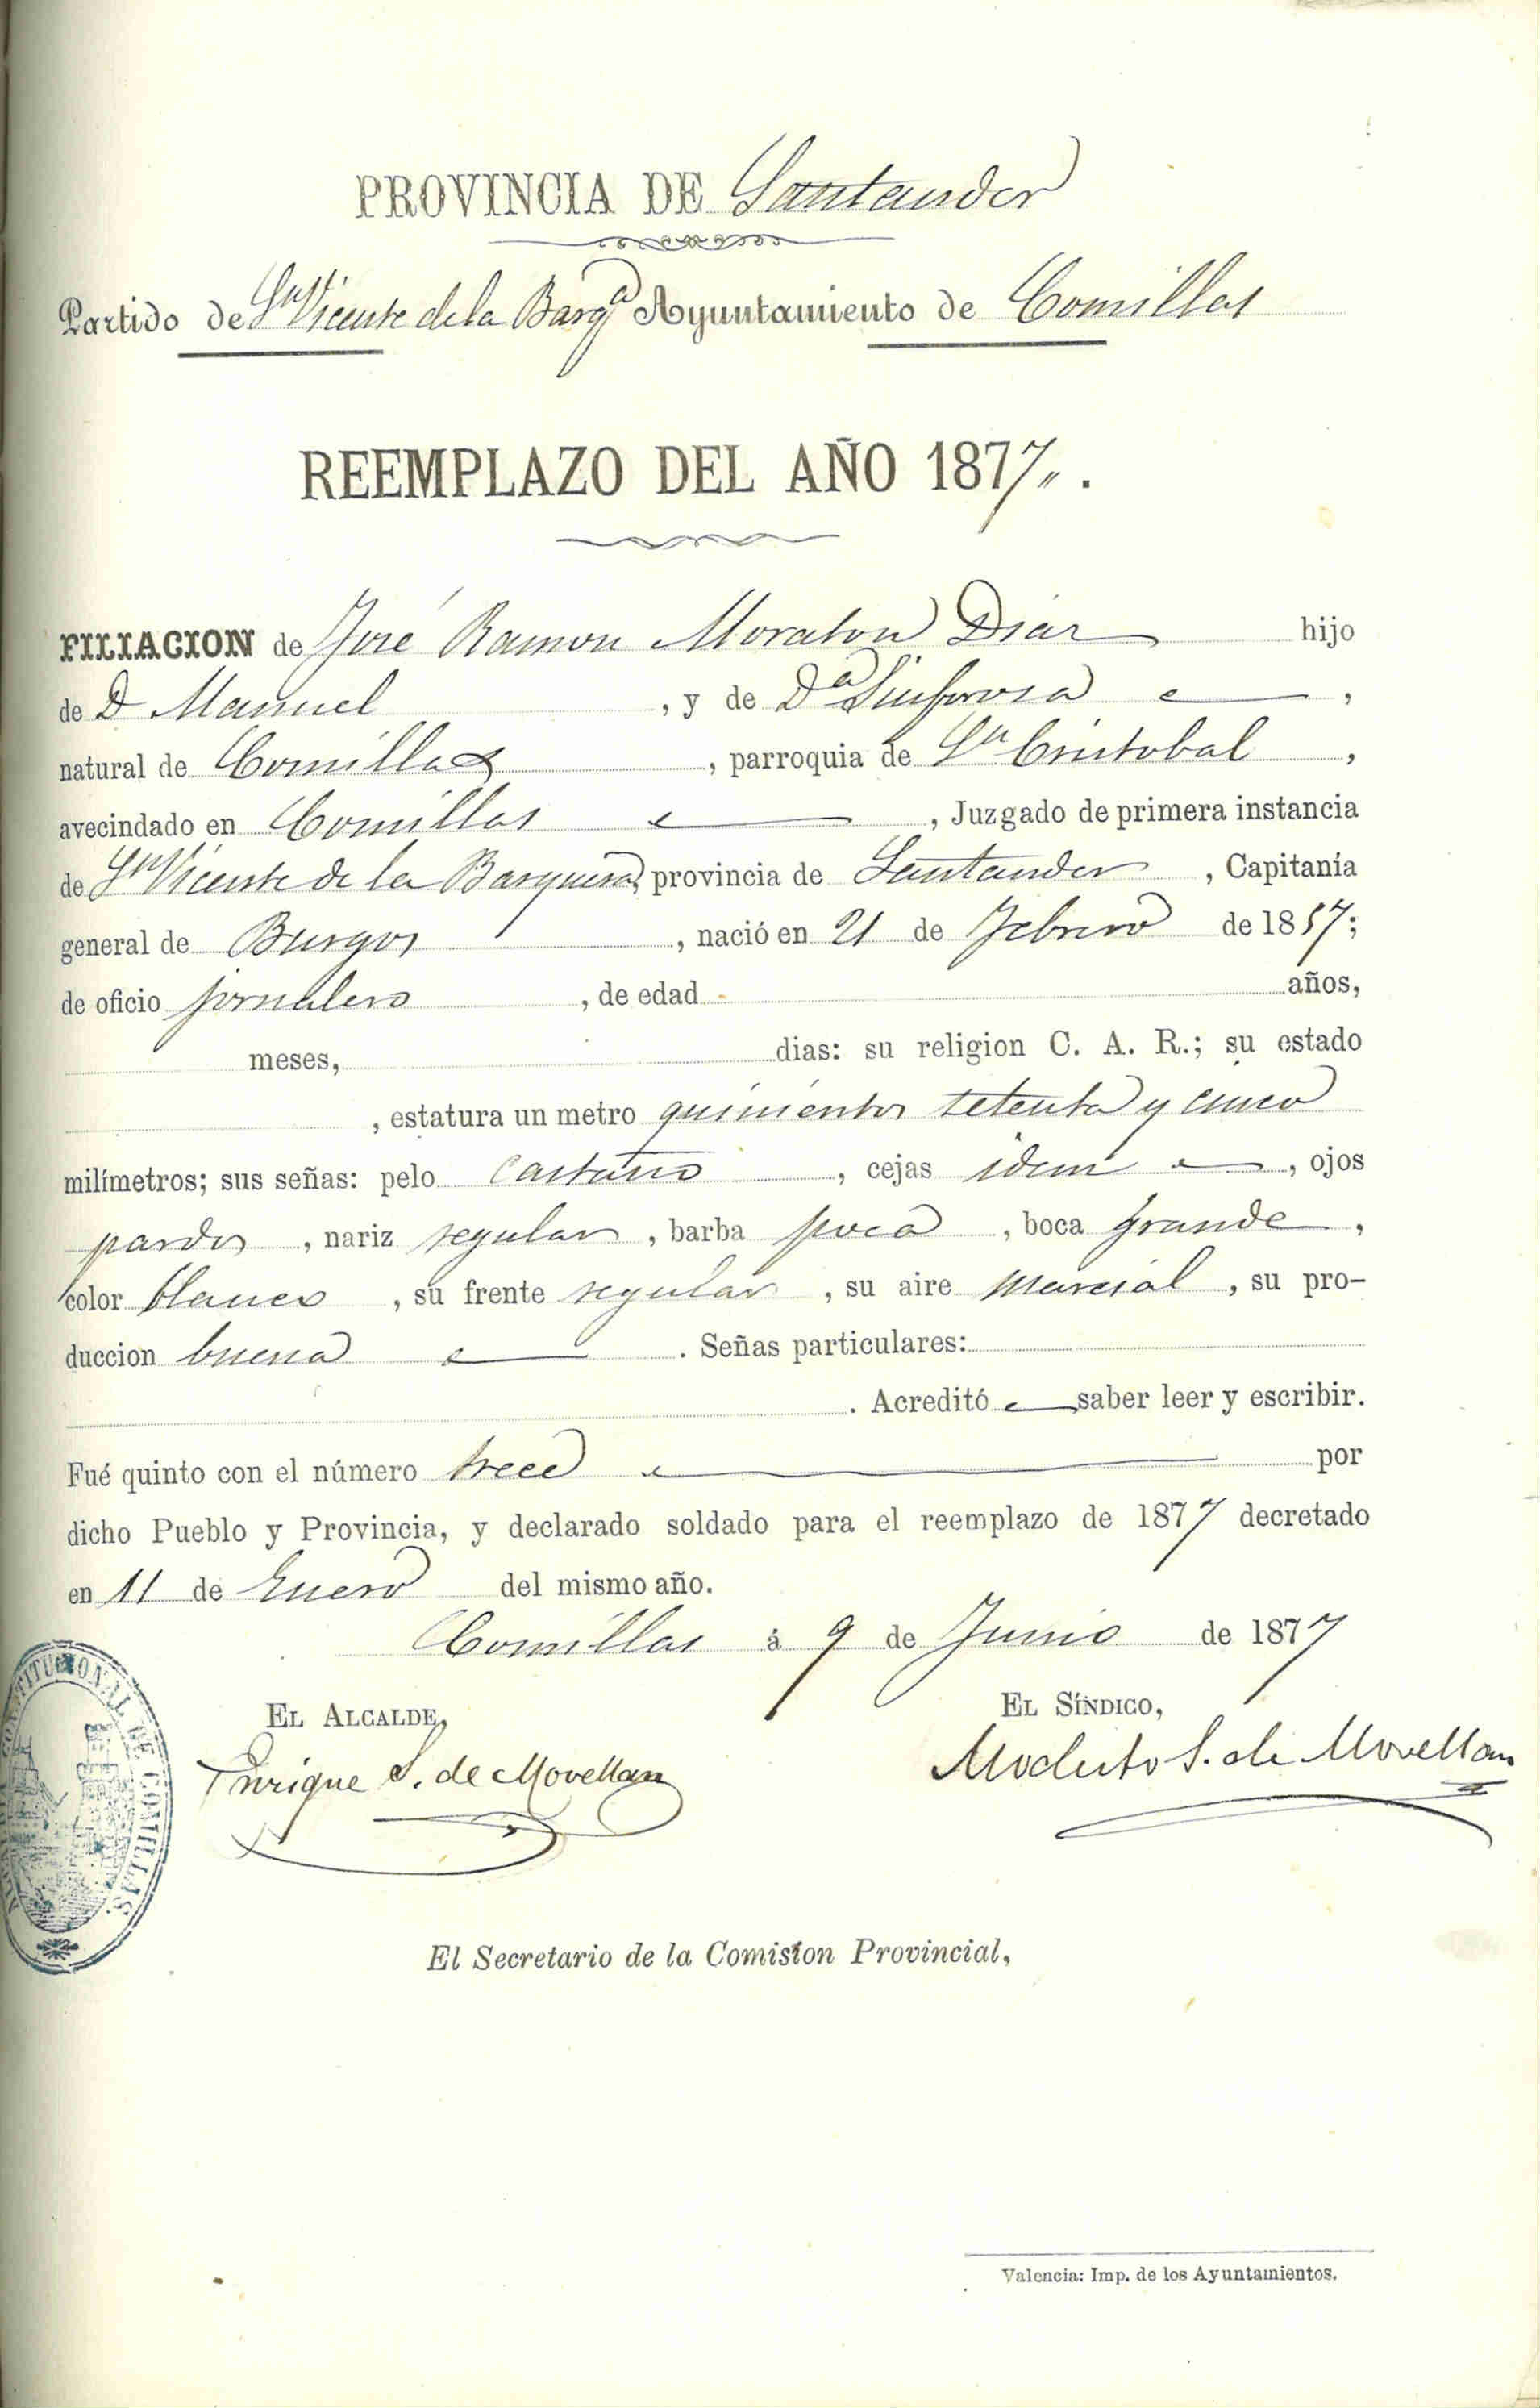 PROVINCIA DE Santander
Partido de Sn Vicente de la Barqa Ayuntamiento de Comillas
REEMPLAZO DEL AÑO 1877.
FILIACION de José Ramon Moraton Diaz hijo
de D Manuel , y de Da Sinforosa ,
natural de Comillas , parroquia de Sn Cristobal ,
avecindado en Comillas , Juzgado de primera instancia
de Sn Vicente de la Barquera, provincia de Santander , Capitanía
general de Burgos , nació en 21 de Febrero de 1857;
de oficio jornalero , de edad años,
meses, dias: su religion C. A. R.; su estado
, estatura un metro quinientos setenta y cinco
milímetros; sus señas: pelo Castaño , cejas idem , ojos
pardos , nariz regular , barba poca , boca grande ,
color blanco , su frente regular , su aire marcial , su pro-
duccion buena . Señas particulares:
. Acreditó saber leer y escribir.
Fué quinto con el número trece por
dicho Pueblo y Provincia, y declarado soldado para el reemplazo de 1877 decretado
en 11 de Enero del mismo año.
Comillas á 9 de Junio de 1877
EL ALCALDE, EL SÍNDICO,
Enrique S. de Movellan Modesto S. de Movellan
CONSTITUCIONAL DE COMILLAS.
El Secretario de la Comision Provincial,
Valencia: Imp. de los Ayuntamientos.